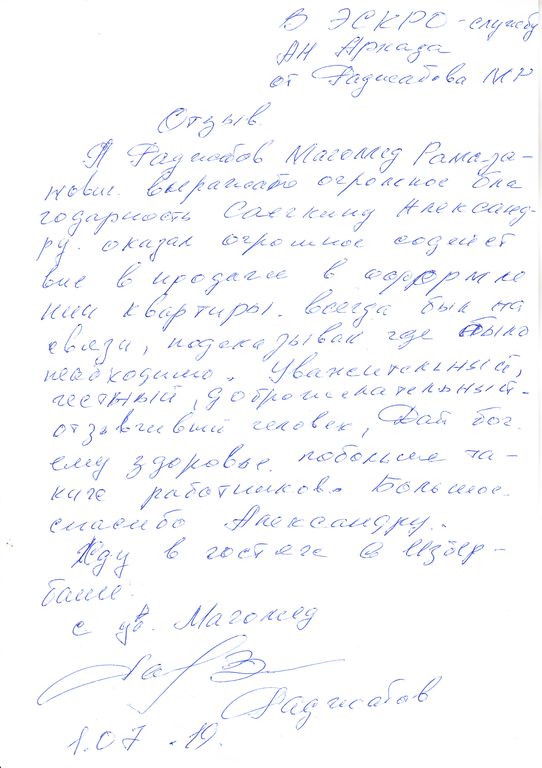 В ЭСКРО-службу
АН Аркада
от Раджабова МР
Отзыв.
Я Раджабов Магомед Рамаза-
нович. выражаю огромное бла
годарность Саечкину Александ-
ру. оказал огромное содейст
вие в продаже в офформле
нии квартиры. всегда был на
связи, подсказывал где было
необходимо. Уважительный,
честный, доброжелательный-
отзывчивый человек, Дай бог.
ему здоровье. побольше та-
ких работников. Большое.
спасибо Александру.
Жду в гостях в Избер-
баше.
с ув. Магомед
Раджабов
1.07.19.